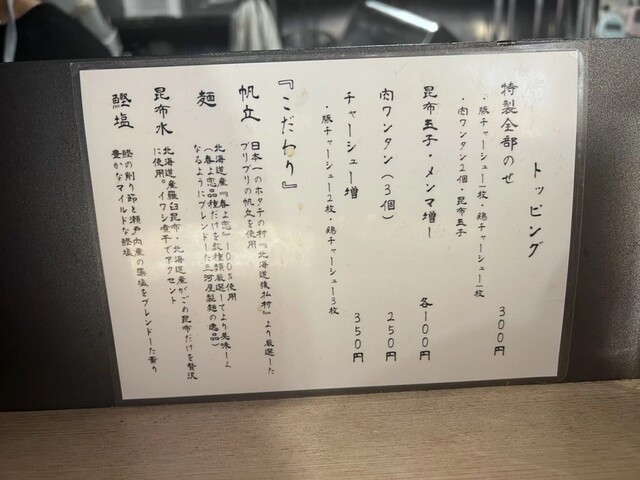 トッピング
特製全部のせ
・豚チャーシュー1枚・鶏チャーシュー1枚
・肉ワンタン2個・昆布玉子
300円
昆布玉子・メンマ増し
各100円
肉ワンタン(3個)
250円
チャーシュー増
350円
・豚チャーシュー2枚・鶏チャーシュー3枚
『こだわり』
帆立
日本一のホタテの村『北海道猿払村』より厳選した
プリプリの帆立を使用
麺
北海道産『春よ恋』100%使用
(春よ恋品種だけを数種類厳選してより美味しく
なるようにブレンドした三河屋製麺の逸品)
昆布水
北海道産羅臼昆布・北海道産がごめ昆布だけを贅沢
に使用。イワシ煮干でアクセント
鰹塩
鰹の削り節と瀬戸内産の藻塩をブレンドした香り
豊かなマイルドな鰹塩